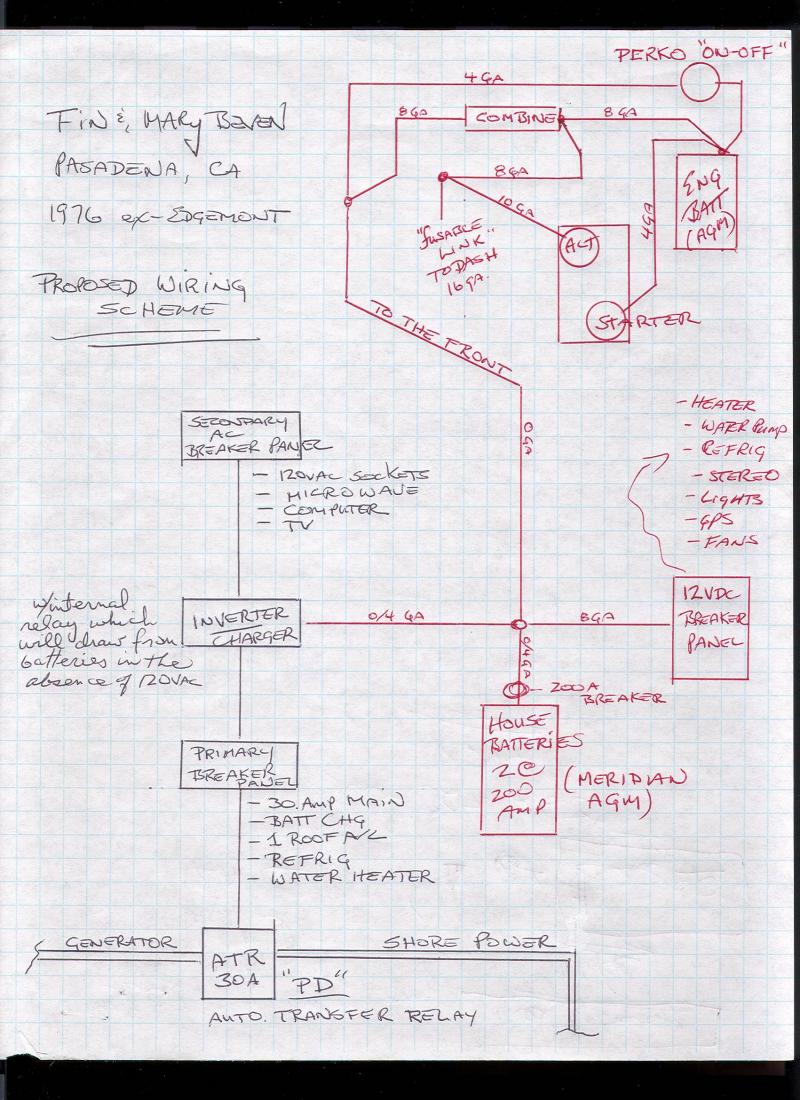 PERKO "ON-OFF"
4 GA
FIN & MARY BEVEN
PASADENA, CA
1976 ex-EDGEMONT
PROPOSED WIRING
SCHEME
8 GA
COMBINE
8 GA
8 GA
10 GA
4 GA
ENG
BATT
(AGM)
"FUSABLE
LINK"
TO DASH
16 GA.
ALT
STARTER
TO THE FRONT
0 GA
SECONDARY
AC
BREAKER PANEL
- 120VAC SOCKETS
- MICROWAVE
- COMPUTER
- TV
- HEATER
- WATER PUMP
- REFRIG
- STEREO
- LIGHTS
- GPS
- FANS
w/internal
relay which
will draw from
batteries in the
absence of 120VAC
INVERTER
CHARGER
0/4 GA
8GA
12VDC
BREAKER
PANEL
0/4 GA
200A
BREAKER
HOUSE
BATTERIES
2@
200
AMP
(MERIDIAN
AGM)
PRIMARY
BREAKER
PANEL
- 30 AMP MAIN
- BATT CHG
- 1 ROOF A/C
- REFRIG
- WATER HEATER
GENERATOR
SHORE POWER
ATR
30A
"PD"
AUTO. TRANSFER RELAY